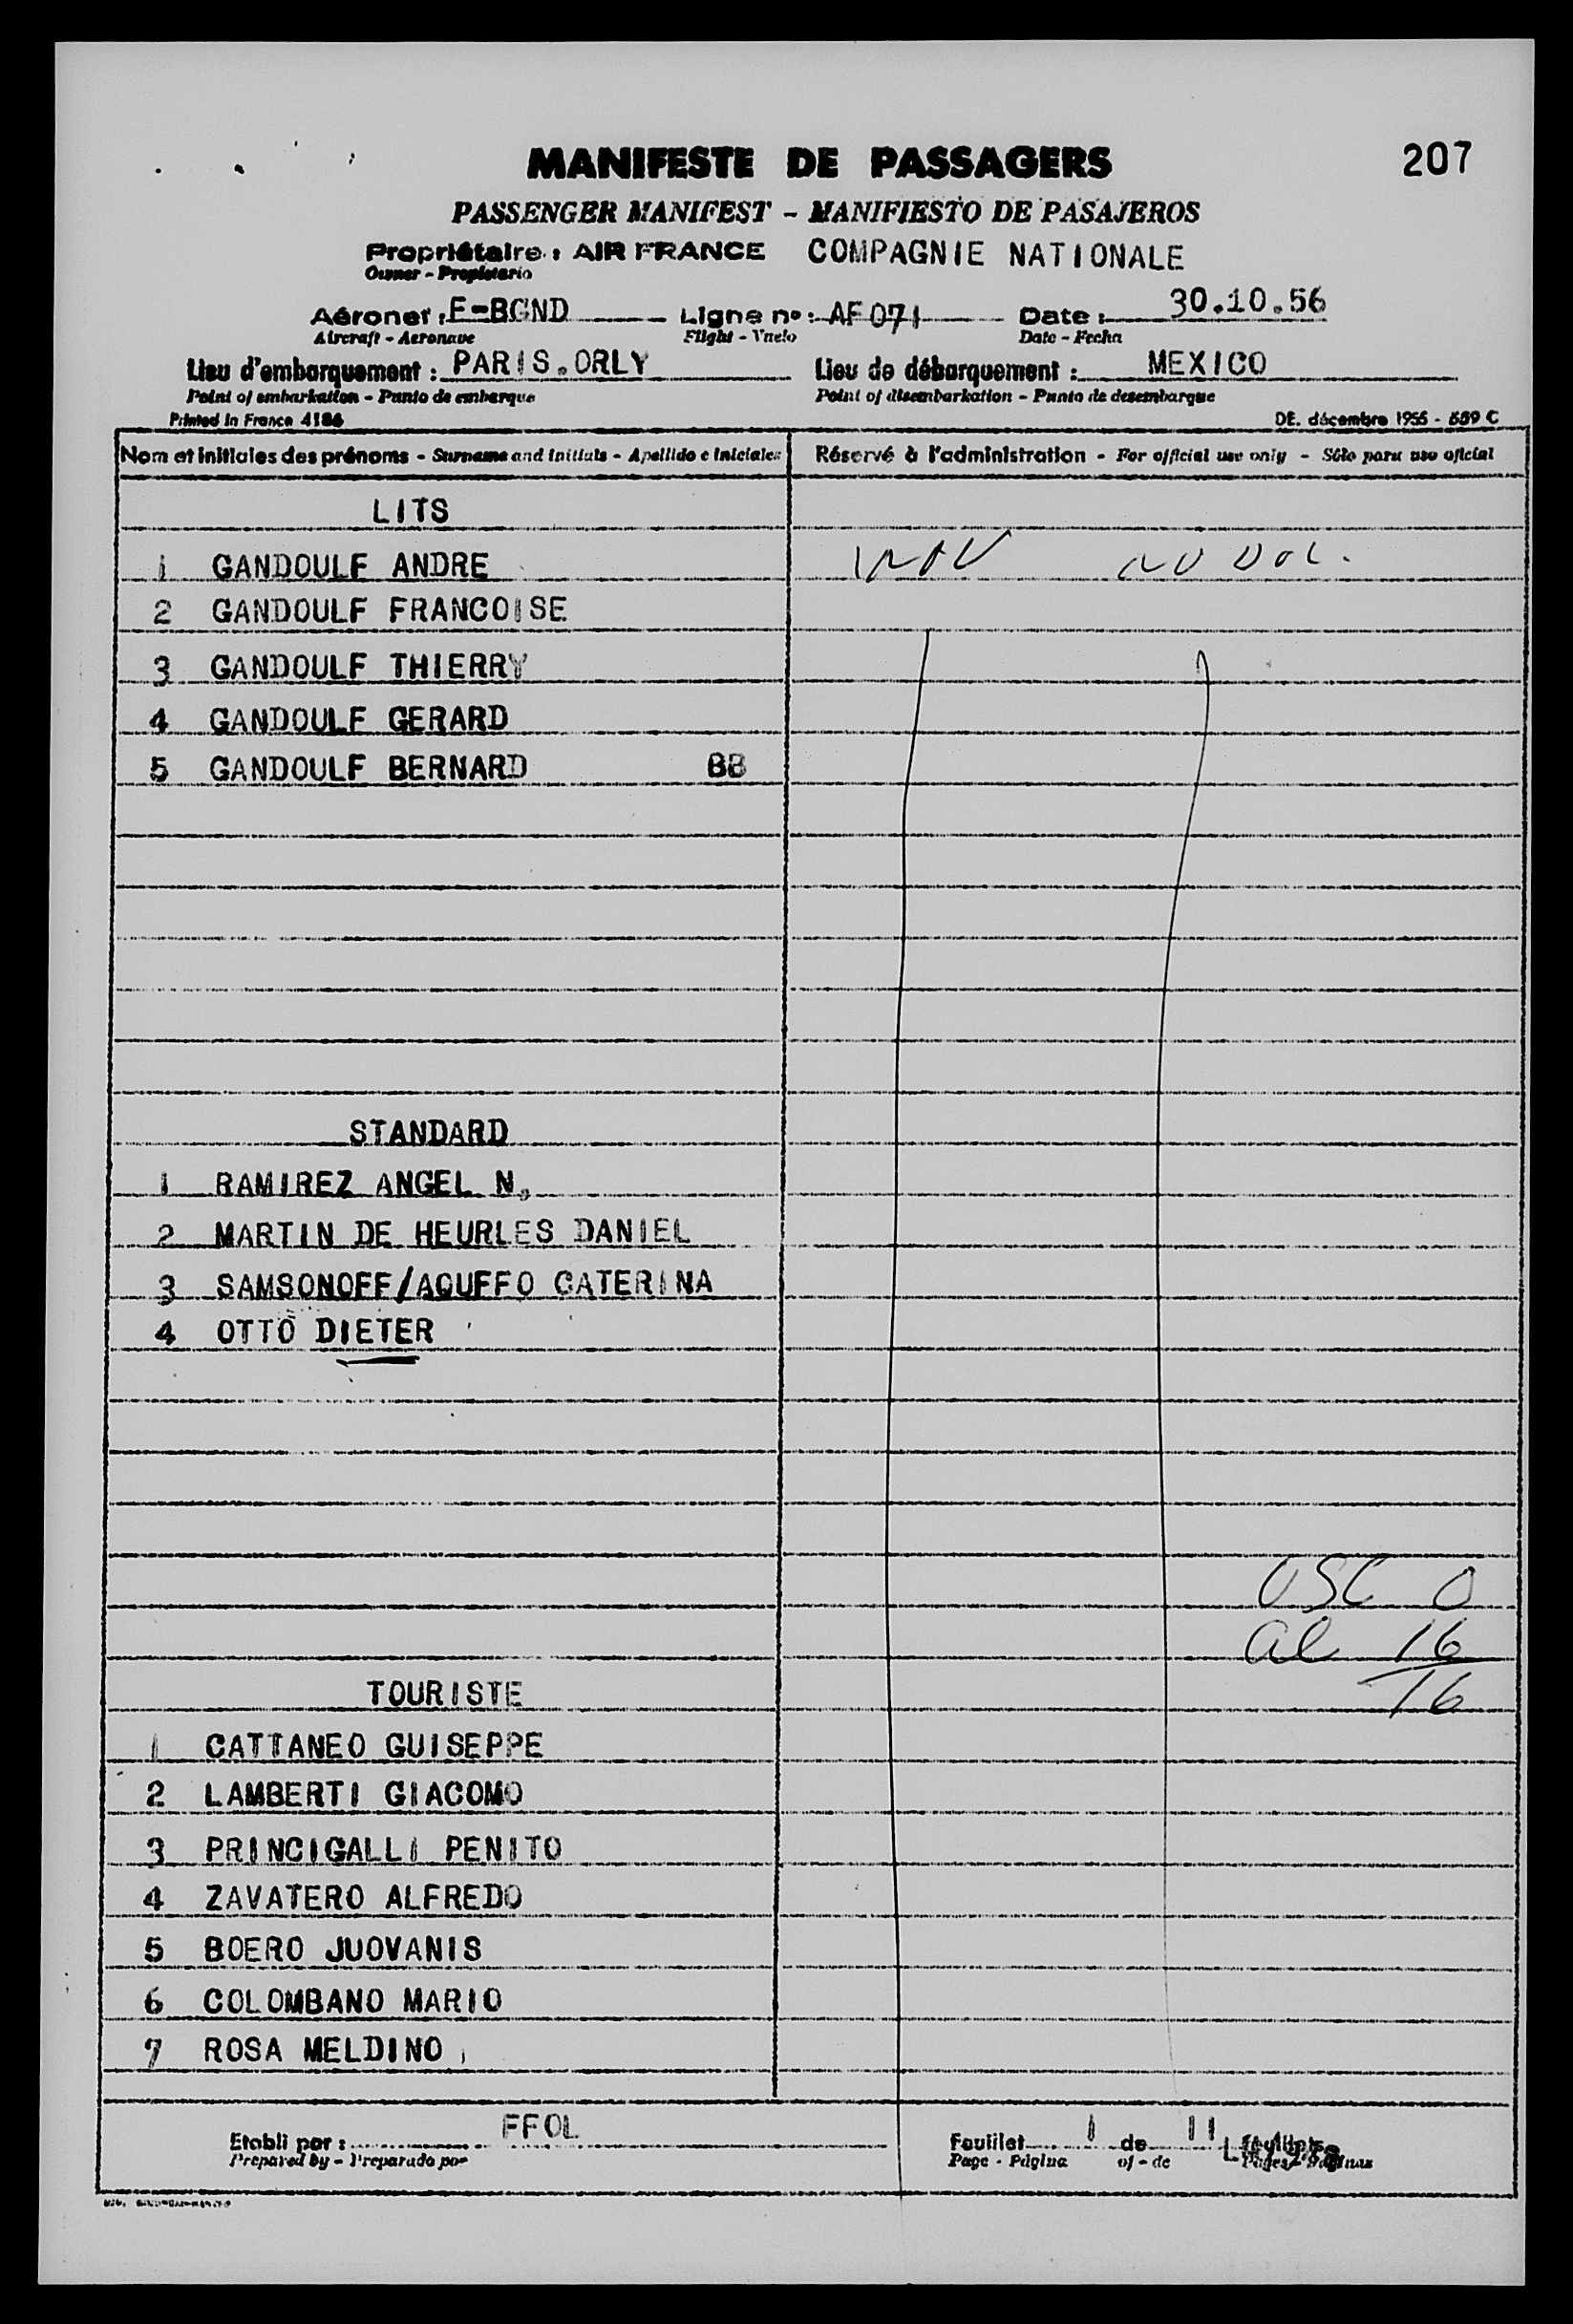 MANIFESTE DE PASSAGERS 207
PASSENGER MANIFEST - MANIFIESTO DE PASAJEROS
Propriétaire : AIR FRANCE COMPAGNIE NATIONALE
Owner - Propietario
Aéronef : F-BGND Ligne nº : AF 071 Date : 30.10.56
Aircraft - Aeronave Flight - Vuelo Date - Fecha
Lieu d'embarquement : PARIS.ORLY Lieu de débarquement : MEXICO
Point of embarkation - Punto de embarque Point of disembarkation - Punto de desembarque
Printed in France 4186 DE. décembre 1955 - 559 C
Nom et initiales des prénoms - Surname and initials - Apellido e iniciales Réservé à l'administration - For official use only - Sólo para uso oficial
LITS
1 GANDOULF ANDRE
2 GANDOULF FRANCOISE
3 GANDOULF THIERRY
4 GANDOULF GERARD
5 GANDOULF BERNARD BB
STANDARD
1 RAMIREZ ANGEL N.
2 MARTIN DE HEURLES DANIEL
3 SAMSONOFF/AQUFFO CATERINA
4 OTTO DIETER
USC 0
al 16
16
TOURISTE
1 CATTANEO GUISEPPE
2 LAMBERTI GIACOMO
3 PRINCIGALLI PENITO
4 ZAVATERO ALFREDO
5 BOERO JUOVANIS
6 COLOMBANO MARIO
7 ROSA MELDINO
Etabli par : FFOL Feuillet 1 de 11 feuillets
Prepared by - Preparado por Page - Página of - de Pages - Páginas